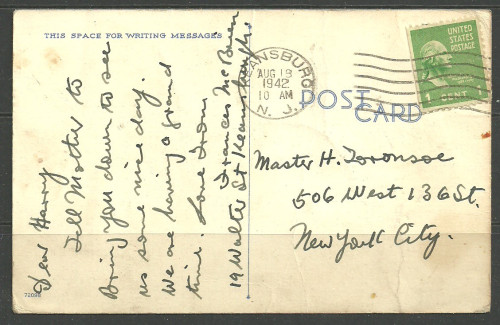 THIS SPACE FOR WRITING MESSAGES
Dear Harry
Tell Mother to
Bring you down to see
us some nice day.
We are having a grand
time. Love from
Frances McBrien
19 Walter St Keansburg N.J.
KEANSBURG
AUG 19
1942
10 AM
N. J.
UNITED
STATES
POSTAGE
1 CENT 1
POST
CARD
Master H.
506 West 136 St.
New York City.